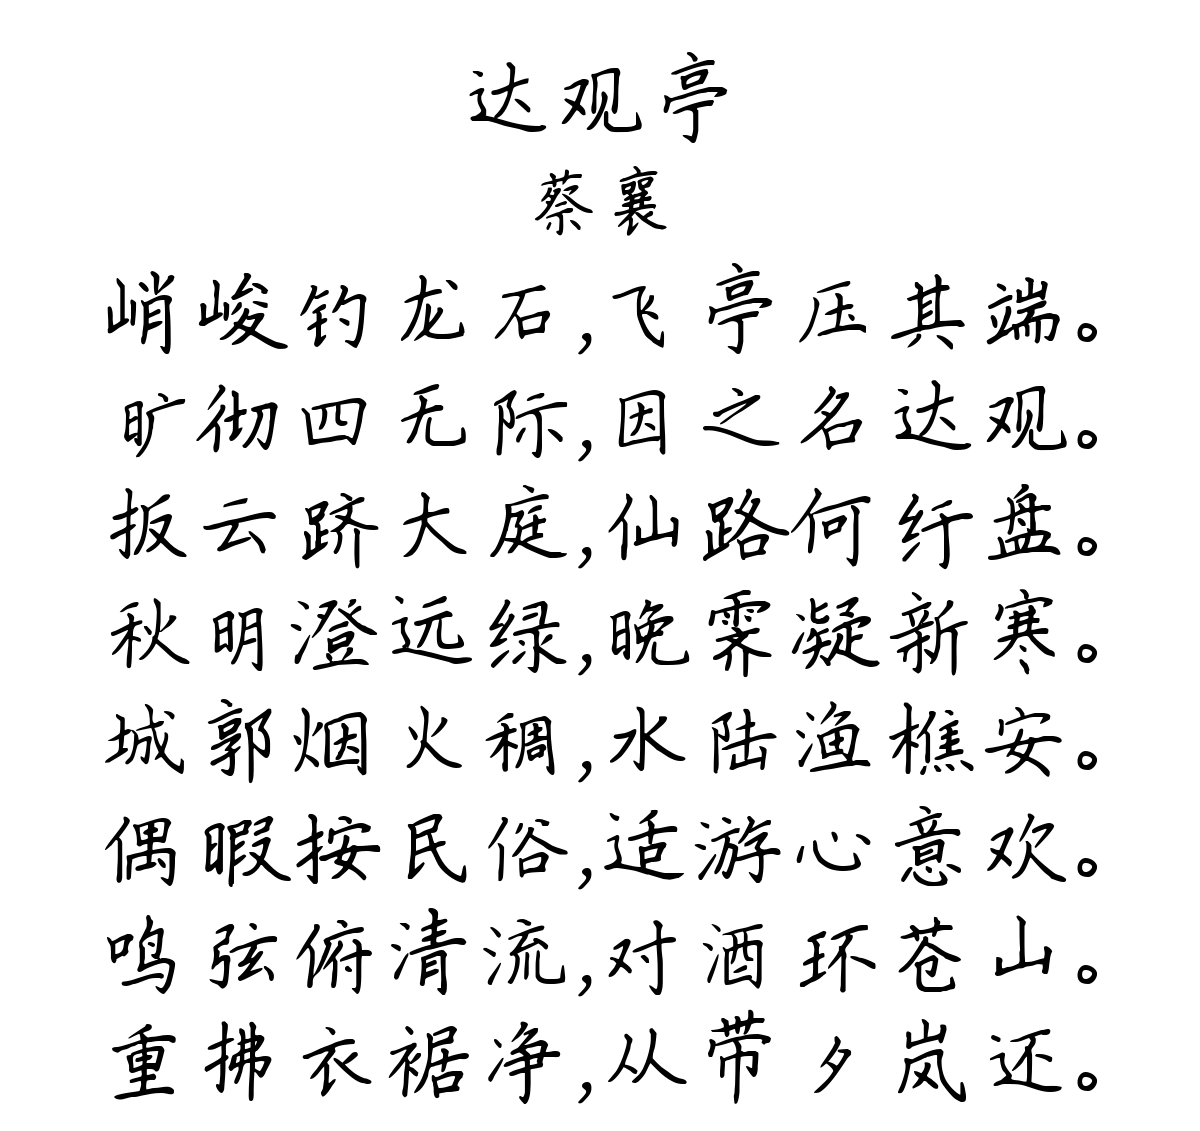 达观亭
蔡襄
峭峻钓龙石,飞亭压其端。
旷彻四无际,因之名达观。
扳云跻大庭,仙路何纡盘。
秋明澄远绿,晚霁凝新寒。
城郭烟火稠,水陆渔樵安。
偶暇按民俗,适游心意欢。
鸣弦俯清流,对酒环苍山。
重拂衣裾净,从带夕岚还。